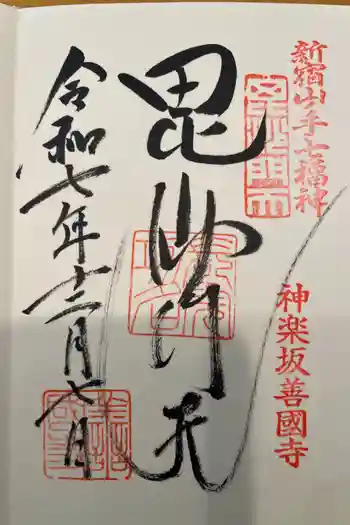 新宿山手七福神
神楽坂善國寺
毘沙門天
令和七年十二月七日